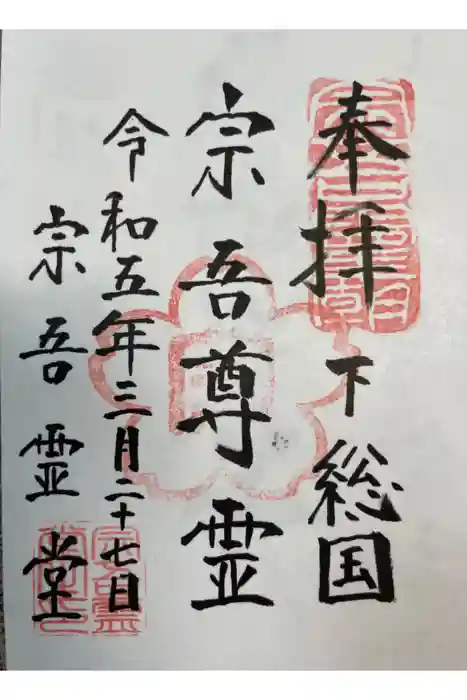 奉拝 下総国
宗吾尊霊
令和五年三月二十七日
宗吾霊堂